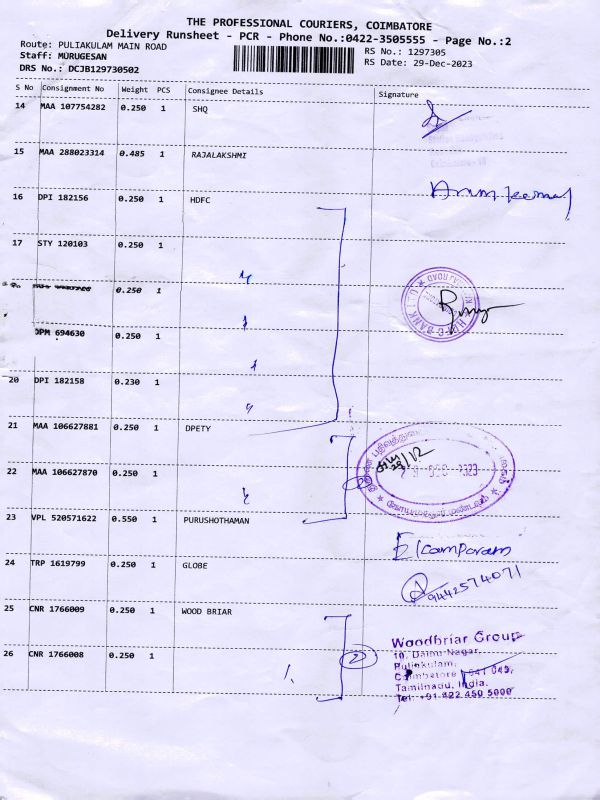 THE PROFESSIONAL COURIERS, COIMBATORE
Delivery Runsheet - PCR - Phone No.:0422-3505555 - Page No.:2
Route: PULIAKULAM MAIN ROAD
RS No.: 1297305
Staff: MURUGESAN
RS Date: 29-Dec-2023
DRS No.: DCJB129730502
S No Consignment No Weight PCS Consignee Details Signature
14 MAA 107754282 0.250 1 SHQ
15 MAA 288023314 0.485 1 RAJALAKSHMI
16 DPI 182156 0.250 1 HDFC
17 STY 120103 0.250 1
0.250 1
DPM 694630 0.250 1
20 DPI 182158 0.230 1
21 MAA 106627881 0.250 1 DPETY
22 MAA 106627870 0.250 1
23 VPL 520571622 0.550 1 PURUSHOTHAMAN
24 TRP 1619799 0.250 1 GLOBE
9442574071
25 CNR 1766009 0.250 1 WOOD BRIAR
26 CNR 1766008 0.250 1
2
Woodbriar Group
10, Damu Nagar,
Pulinkulam,
Coimbatore 641 045,
Tamilnadu, India.
Tel: +91 422 450 5000